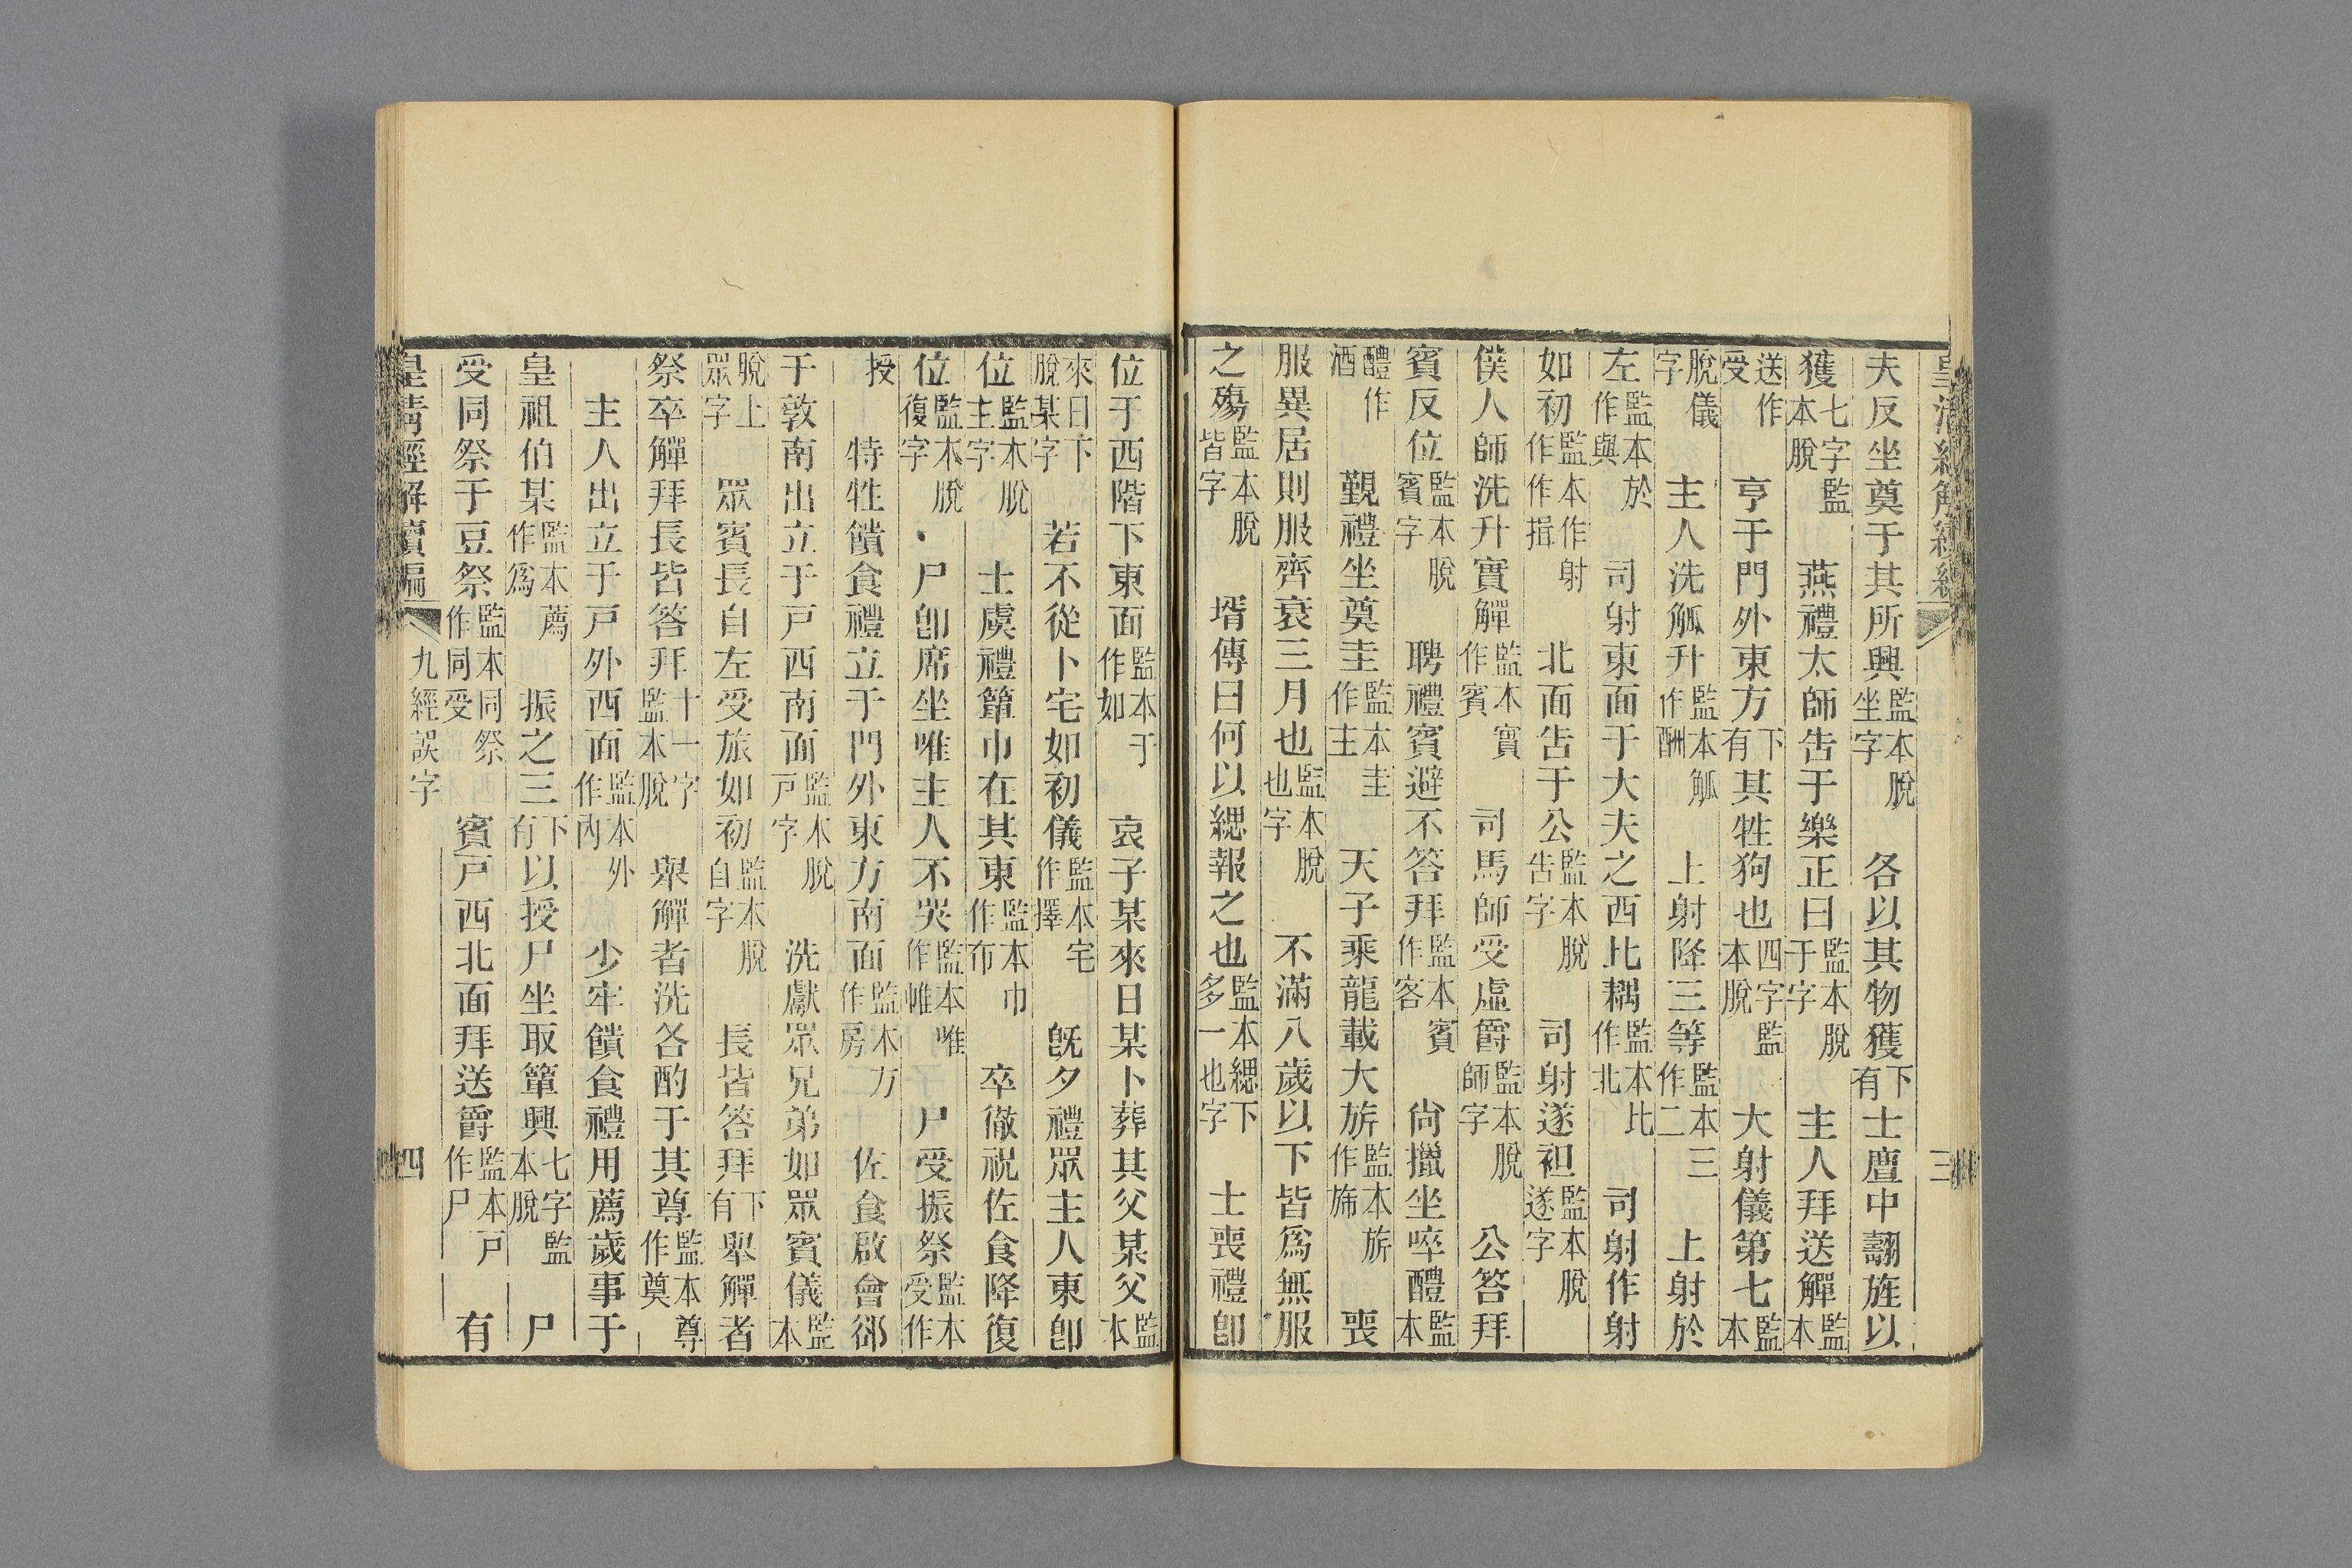 皇清經解續編
三
夫反坐奠于其所興監本脫坐字　各以其物獲下有士鹿中翿旌以
獲七字監本脫　燕禮太師告于樂正曰監本脫于字　主人拜送觶監本
送作受　亨于門外東方下有其牲狗也四字監本脫　大射儀第七監本
脫儀字　主人洗觚升監本觚作酬　上射降三等監本三作二　上射於
左監本於作與　司射東面于大夫之西比耦監本比作北　司射作射
如初監本作射作揖　北面告于公監本脫告字　司射遂袒監本脫遂字
僕人師洗升實觶監本實作賓　司馬師受虛爵監本脫師字　公答拜
賓反位監本脫賓字　聘禮賓避不答拜監本賓作客　尙擸坐啐醴監本
醴作酒　覲禮坐奠圭監本圭作主　天子乘龍載大旂監本旂作斾　喪
服異居則服齊衰三月也監本脫也字　不滿八歲以下皆爲無服
之殤監本脫皆字　壻傳曰何以緦報之也監本緦下多一也字　士喪禮卽
位于西階下東面監本于作如　哀子某來日某卜葬其父某父監本
來日下脫某字　若不從卜宅如初儀監本宅作擇　旣夕禮眾主人東卽
位監本脫主字　士虞禮簞巾在其東監本巾作布　卒徹祝佐食降復
位監本脫復字　尸卽席坐唯主人不哭監本唯作帷　尸受振祭監本受作
授　特牲饋食禮立于門外東方南面監本方作房　佐食啟會郤
于敦南出立于戶西南面監本脫戶字　洗獻眾兄弟如眾賓儀監本
脫上眾字　眾賓長自左受旅如初監本脫自字　長皆答拜下有舉觶者
祭卒觶拜長皆答拜十一字監本脫　舉觶者洗各酌于其尊監本尊作奠
主人出立于戶外西面監本外作內　少牢饋食禮用薦歲事于
皇祖伯某監本薦作爲　振之三下有以授尸坐取簞興七字監本脫　尸
受同祭于豆祭監本同祭作同受　賓戶西北面拜送爵監本戶作尸　有
皇清經解續編
九經誤字
四